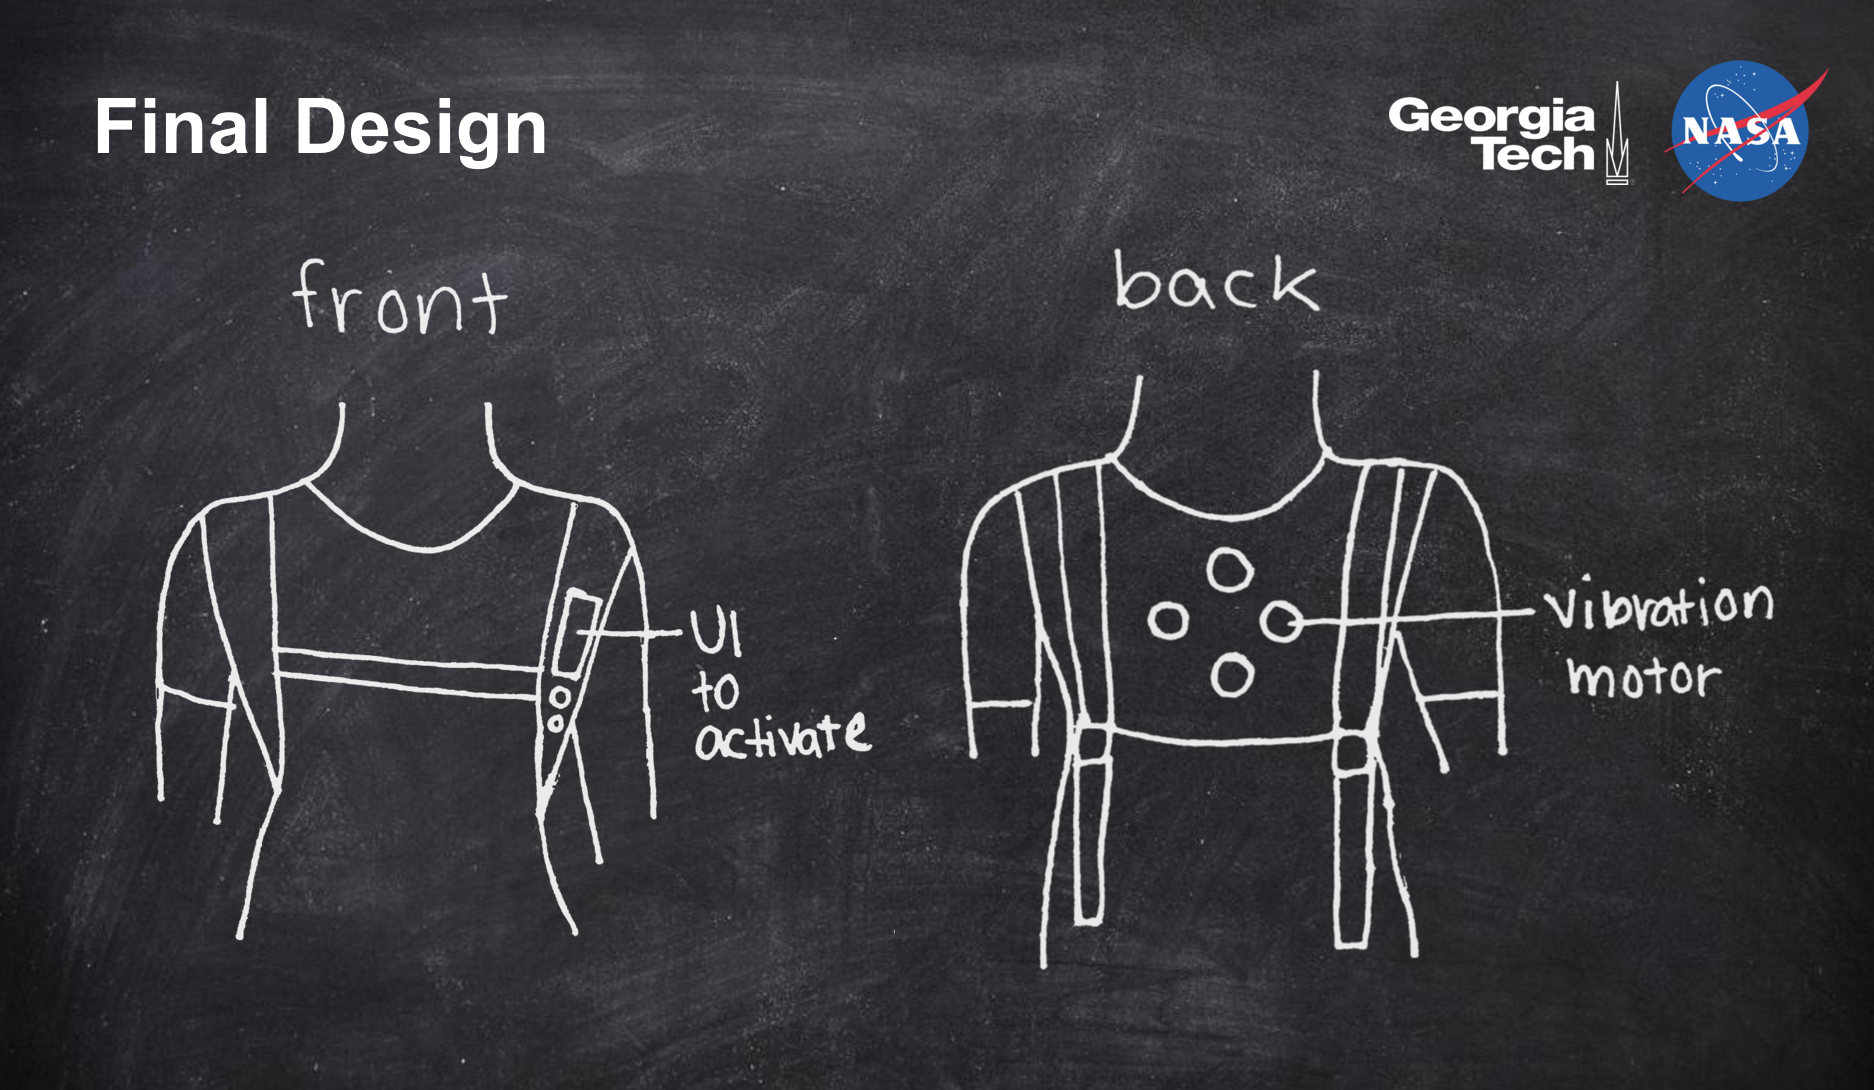 Final Design
Georgia
Tech
NASA
front
back
UI
to
activate
vibration
motor